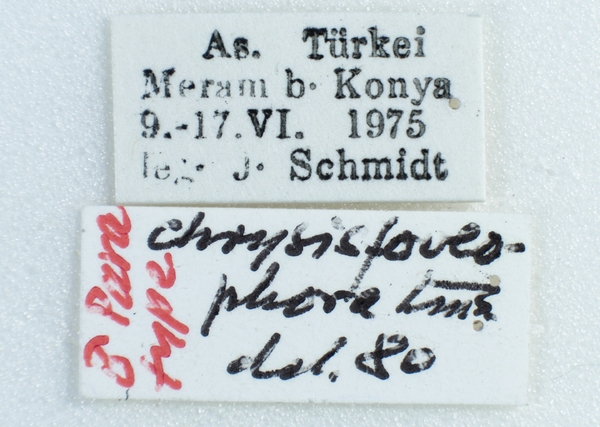 As. Türkei
Meram b. Konya
9.-17.VI. 1975
leg. J. Schmidt
♂ Para
type
chrysis foveo-
phora Lins.
det. 80